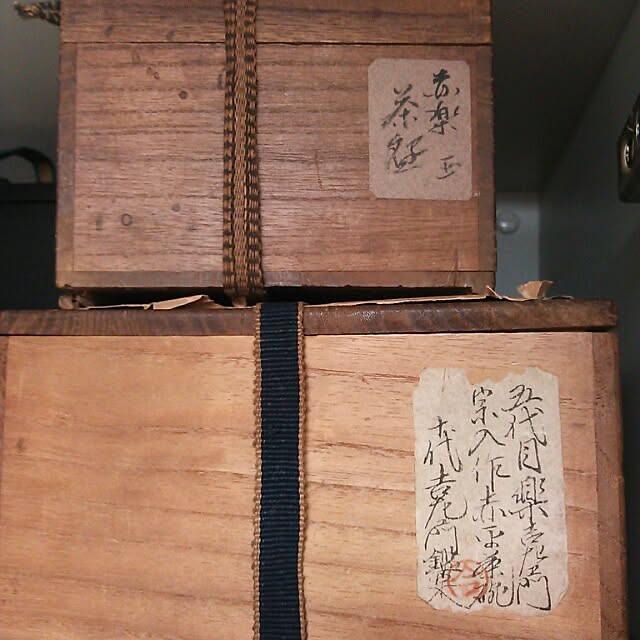 赤楽
茶碗
五代目 樂吉左衛門
宗入作 赤平茶碗
十代 吉左衛門